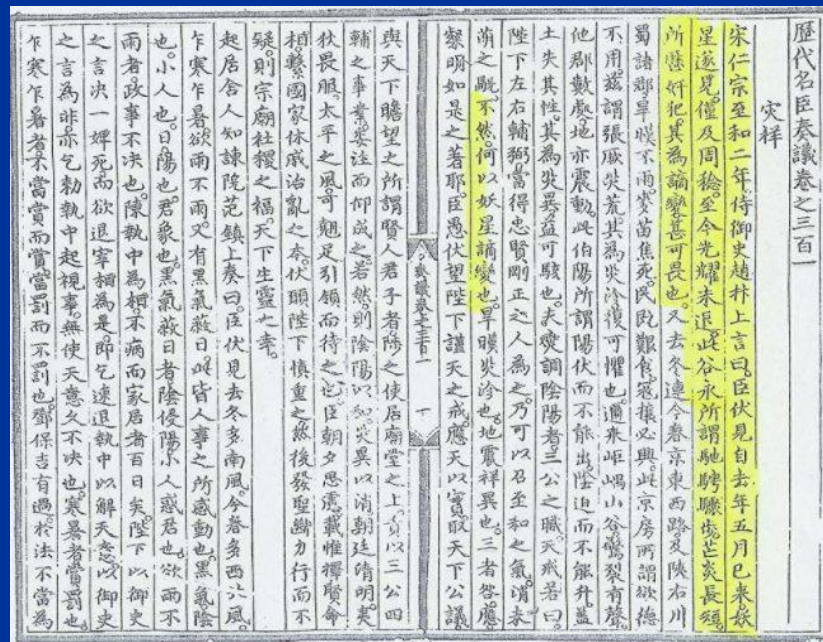 歷代名臣奏議卷之三百一
灾祥
宋仁宗至和二年侍御史趙抃上言曰臣伏見自去年五月已來妖
星遂見僅及周稔至今光耀未退此谷永所謂馳騁驟步芒炎長短
所歷奸犯其為謫變甚可畏也又去冬連今春京東西路及陜右川
蜀諸郡旱暵不雨麥苗焦死民既艱食寇攘必興此京房所謂欲德
不用茲謂張厥灾荒其為灾沴復可懼也邇來岠嵎山谷驚裂有聲
他郡數處地亦震動此伯陽所謂陽伏而不能出陰迫而不能升蓋
土失其性其為灾異益可駭也夫燮調陰陽者三公之職天戒若曰
陛下左右輔弼當得忠賢剛正之人為之乃可以召至和之氣消未
萌之眚不然何以妖星謫變也旱暵灾沴也地震祥異也三者咎應
察明如是之著耶臣愚伏望陛下謹天之戒應天以實取天下公議
奏議卷之三百一
與天下瞻望之所謂賢人君子者陟之使居廟堂之上責以三公四
輔之事業委注而仰成之若然則陰陽以和灾異以消朝廷清明夷
狄畏服太平之風可翹足引領而待之也臣朝夕思慮載惟擇賢命
相繫國家休戚治亂之本伏願陛下慎重之然後發聖斷力行而不
疑則宗廟社稷之福天下生靈之幸
起居舍人知諫院范鎮上奏曰臣伏見去冬多南風今春多西北風
乍寒乍暑欲雨不雨又有黑氣蔽日此皆人事之所感動也黑氣陰
也小人也日陽也君象也黑氣蔽日者陰侵陽小人惑君也欲雨不
雨者政事不决也陳執中為相不病而家居者百日矣陛下以御史
之言决一婢死而欲退宰相為是即乞速退執中以解天意以御史
之言為非亦乞勑執中起視事無使天意久不决也寒暑者賞罰也
乍寒乍暑者不當賞而賞當罰而不罰也鄧保吉有過於法不當為